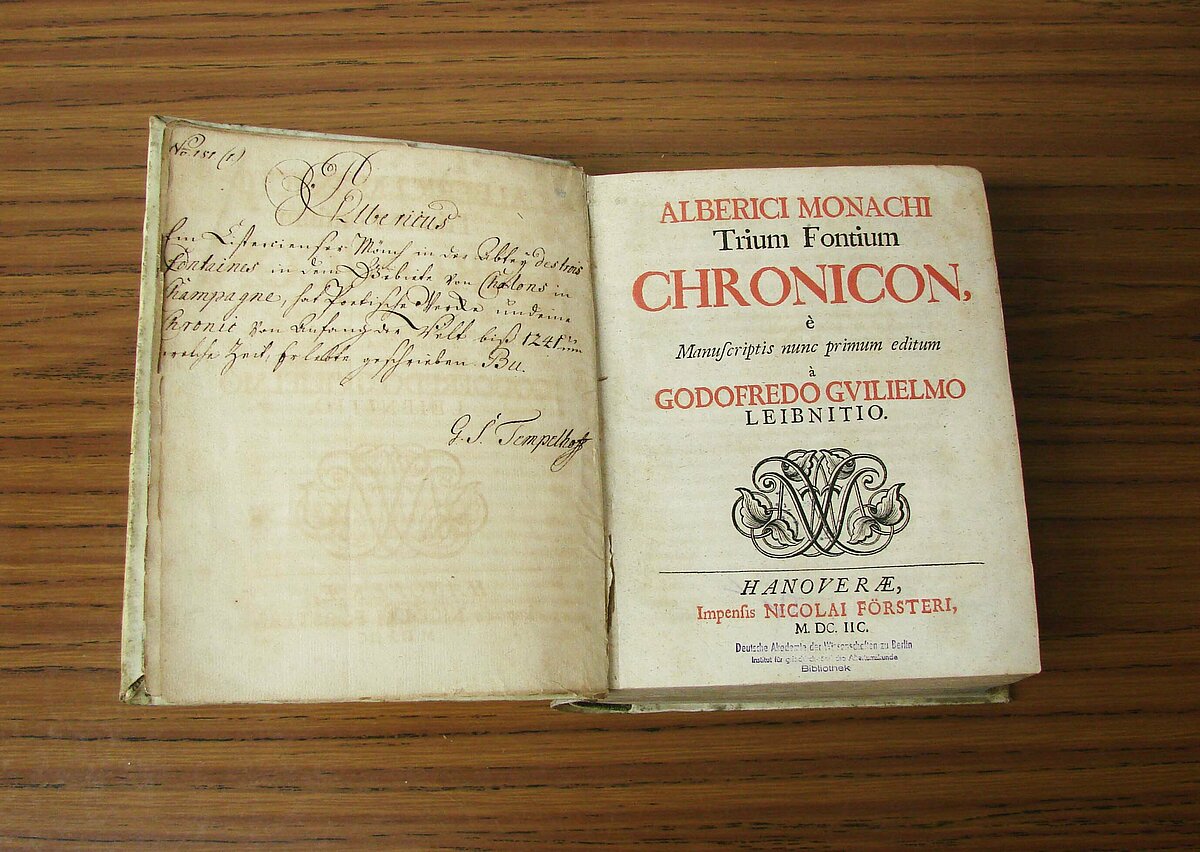 No 151 (1)
Albericus
Ein Cistercienser Mönch in der Abtey des trois
Fontaines in dem Gebiete von Chalons in
Champagne, hat Poetische Wercke und eine
Chronic von Anfang der Welt biß 1241 um
welche Zeit, Er lebte geschrieben. Bu.
G. S. Tempelhoff
ALBERICI MONACHI
Trium Fontium
CHRONICON,
è
Manuſcriptis nunc primum editum
à
GODOFREDO GVILIELMO
LEIBNITIO.
HANOVERÆ,
Impenſis NICOLAI FÖRSTERI,
M. DC. IIC.
Deutsche Akademie der Wissenschaften zu Berlin
Institut für griechisch-röm. Altertumskunde
Bibliothek